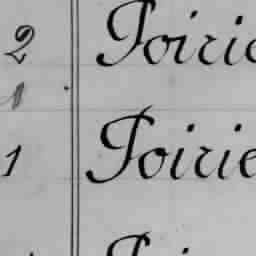 2 Poirie
1
1 Poirie